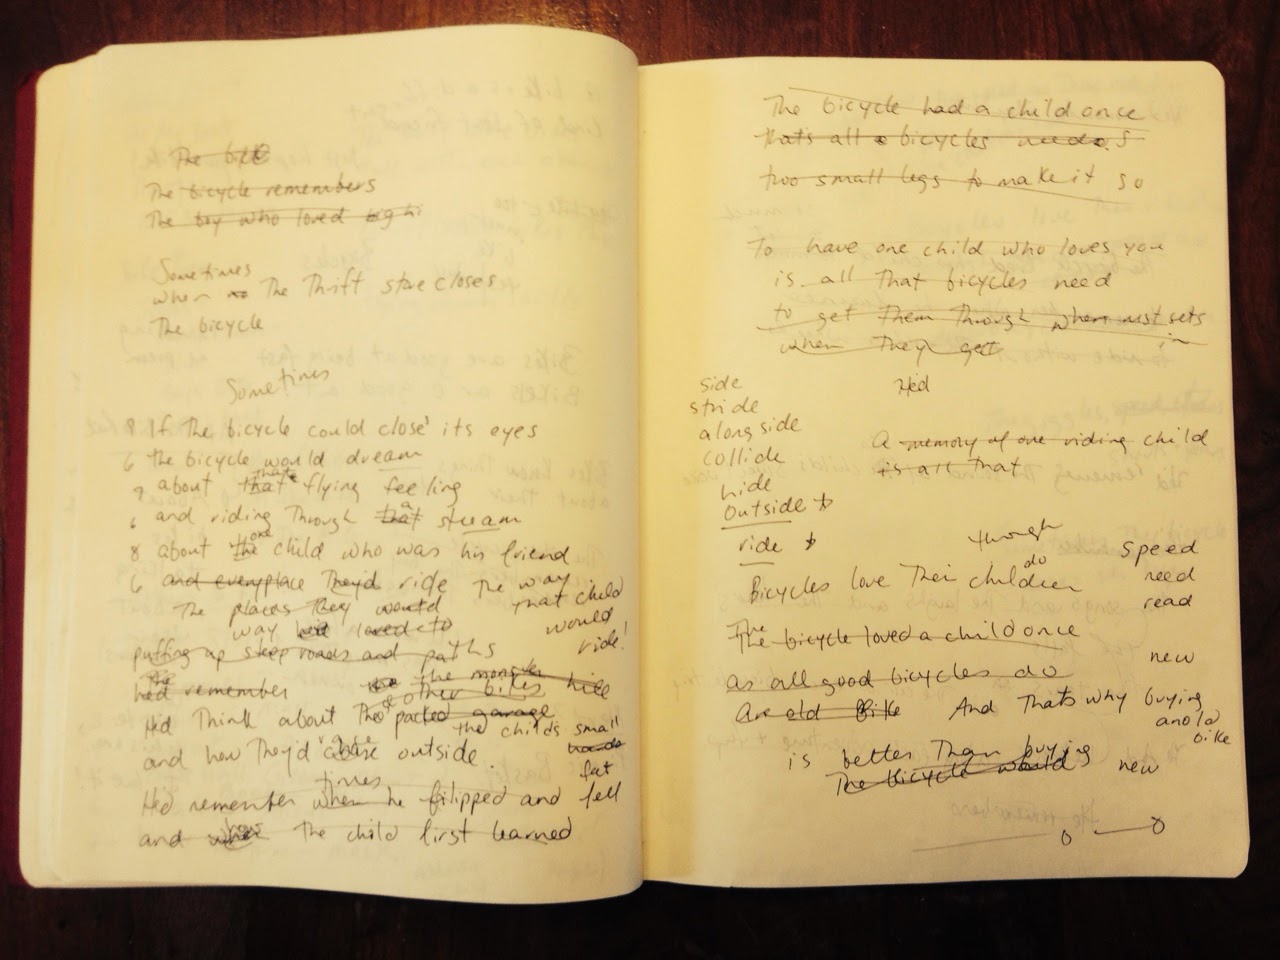 The bike
The bicycle remembers
The boy who loved big hi
Sometimes
when The Thrift store closes
The bicycle
Sometimes
8 If The bicycle could close its eyes
6 the bicycle would dream
that
7 about that flying feeling
a
6 and riding Through that stream
one
8 about the child who was his friend
6 and everyplace They'd ride The way
The places They would That child
way had loved to would
ride!
puffing up steep roads and paths
The
had remember The monster hill
other bikes
Hed Think about The packed garage
the childs small
and how They'd outside hands
fat
times
Hed remember when he flipped and fell
and when The child first learned
The bicycle had a child once
thats all a bicycles needs
two small legs to make it so
To have one child who loves you
is all That bicycles need
to get Them Through when rust sets
in
when They get
Hed
side
stride
alongside
collide
hide
outside
ride
A memory of one riding child
is all That
through
do
Bicycles love Their children
speed
need
read
The
The bicycle loved a child once
new
as all good bicycles do
An old Bike And Thats why buying
an old
bike
is better Than buying
The bicycle would new